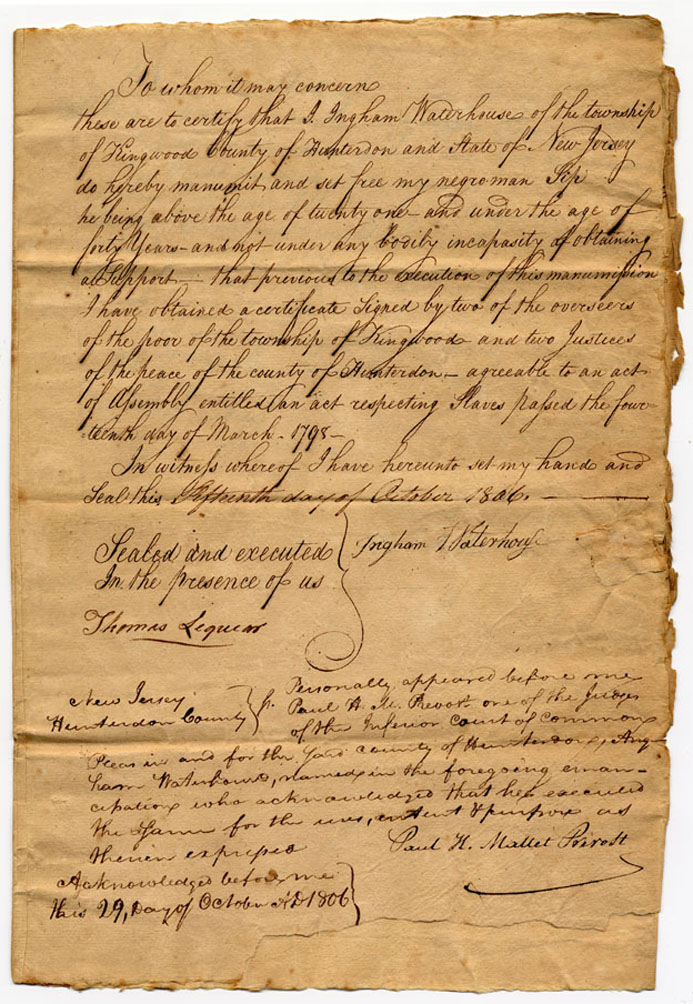 To whom it may concern
these are to certify that I. Ingham Waterhouse of the township
of Kingwood County of Hunterdon and State of New Jersey
do hereby manumit and set free my negro man Sip
he being above the age of twenty one - and under the age of
forty Years - and not under any bodily incapasity of obtaining
a Support - that previous to the execution of this manumission
I have obtained a certificate Signed by two of the overseers
of the poor of the township of Kingwood - and two Justices
of the peace of the county of Hunterdon - agreeable to an act
of Assembly entitled an act respecting Slaves passed the four-
-teenth day of March - 1798 -
In witness whereof I have hereunto set my hand and
Seal this Fifteenth day of October 1806. -
Sealed and executed
In the presence of us
Ingham Waterhouse
Thomas Lequear
New Jersey
Hunterdon County
Personally appeared before me
Paul H. M. Prevost one of the Judges
of the Inferior Court of Common
Pleas in and for the Said county of Hunterdon, Ing-
ham Waterhouse, named in the foregoing eman-
cipation who acknowledged that he executed
the Same for the uses, intent & purpose as
therein expressed
Paul H. Mallet Prevost
Acknowledged before me
this 29, Day of October AD 1806